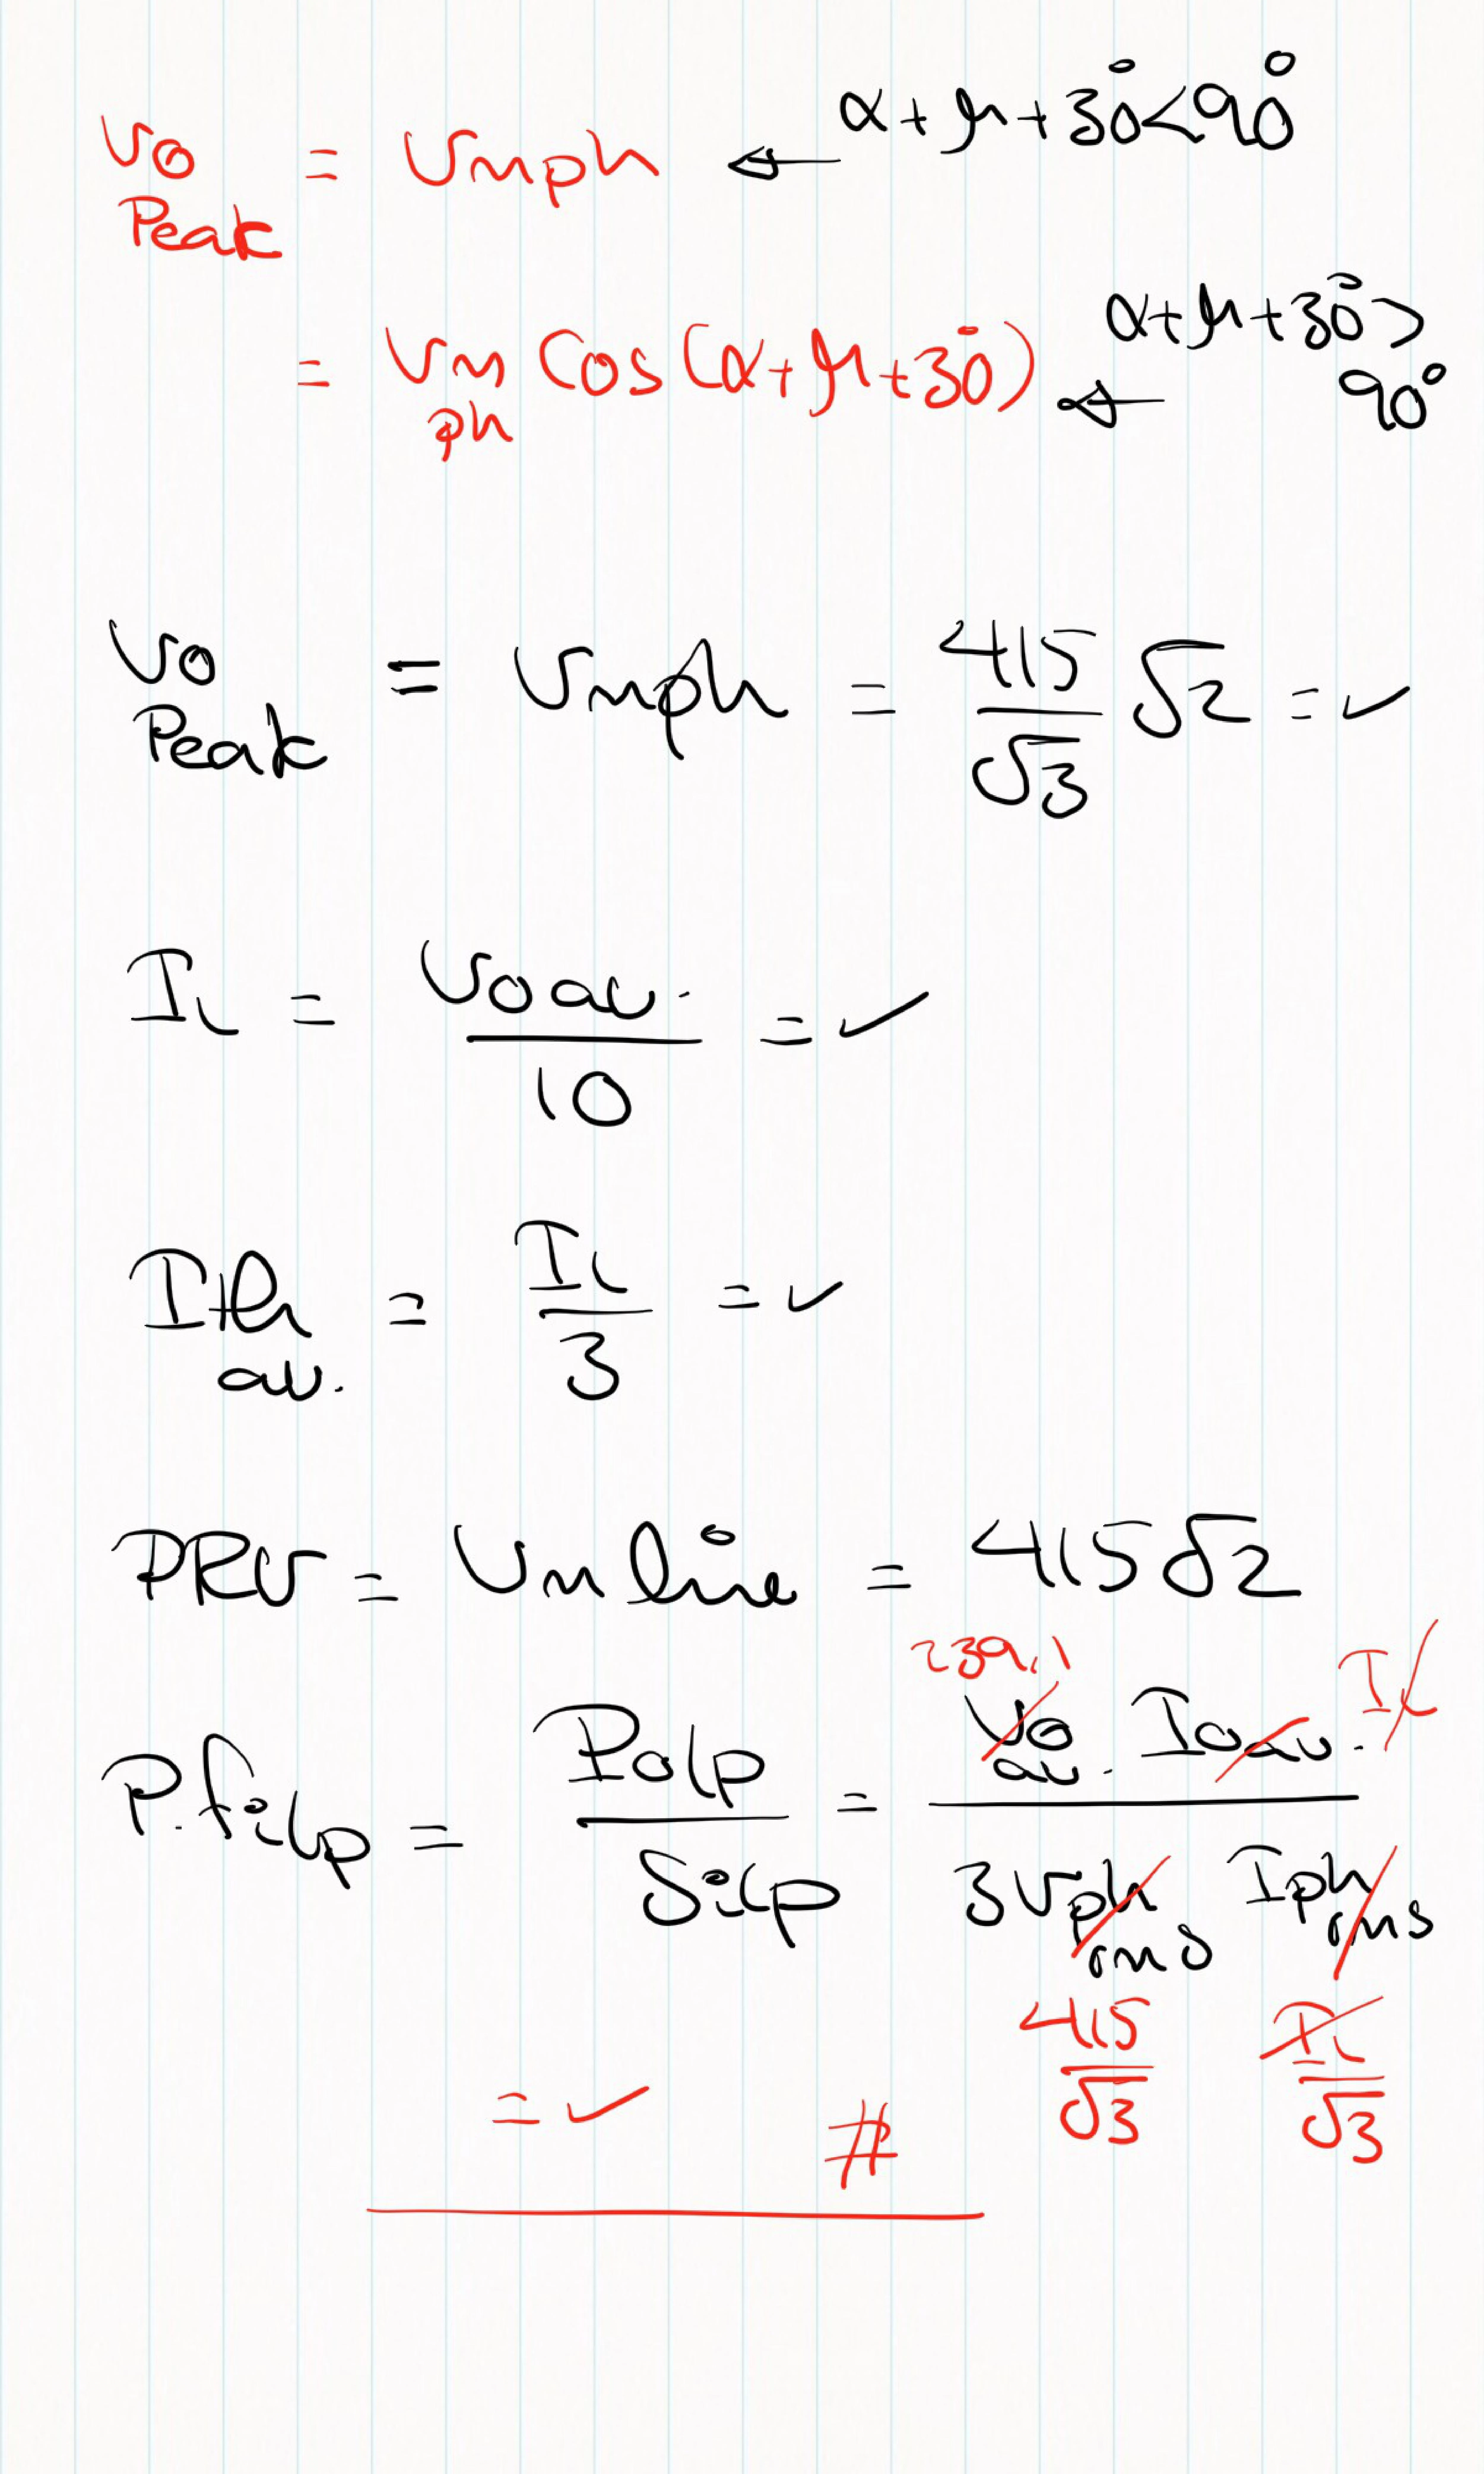 Vo Peak = Vmph ← α + μ + 30° < 90°
= Vm ph Cos(α + μ + 30°) ← α + μ + 30° > 90°
Vo Peak = Vmph = 415/√3 √2 = ✓
IL = Vo av. / 10 = ✓
Ith av. = IL / 3 = ✓
PRV = Vm line = 415√2
P.f i/p = Po/p / Si/p = Vo av. Io av. / 3 Vph rms Iph rms
239.1 IL
415/√3 IL/√3
= ✓ #